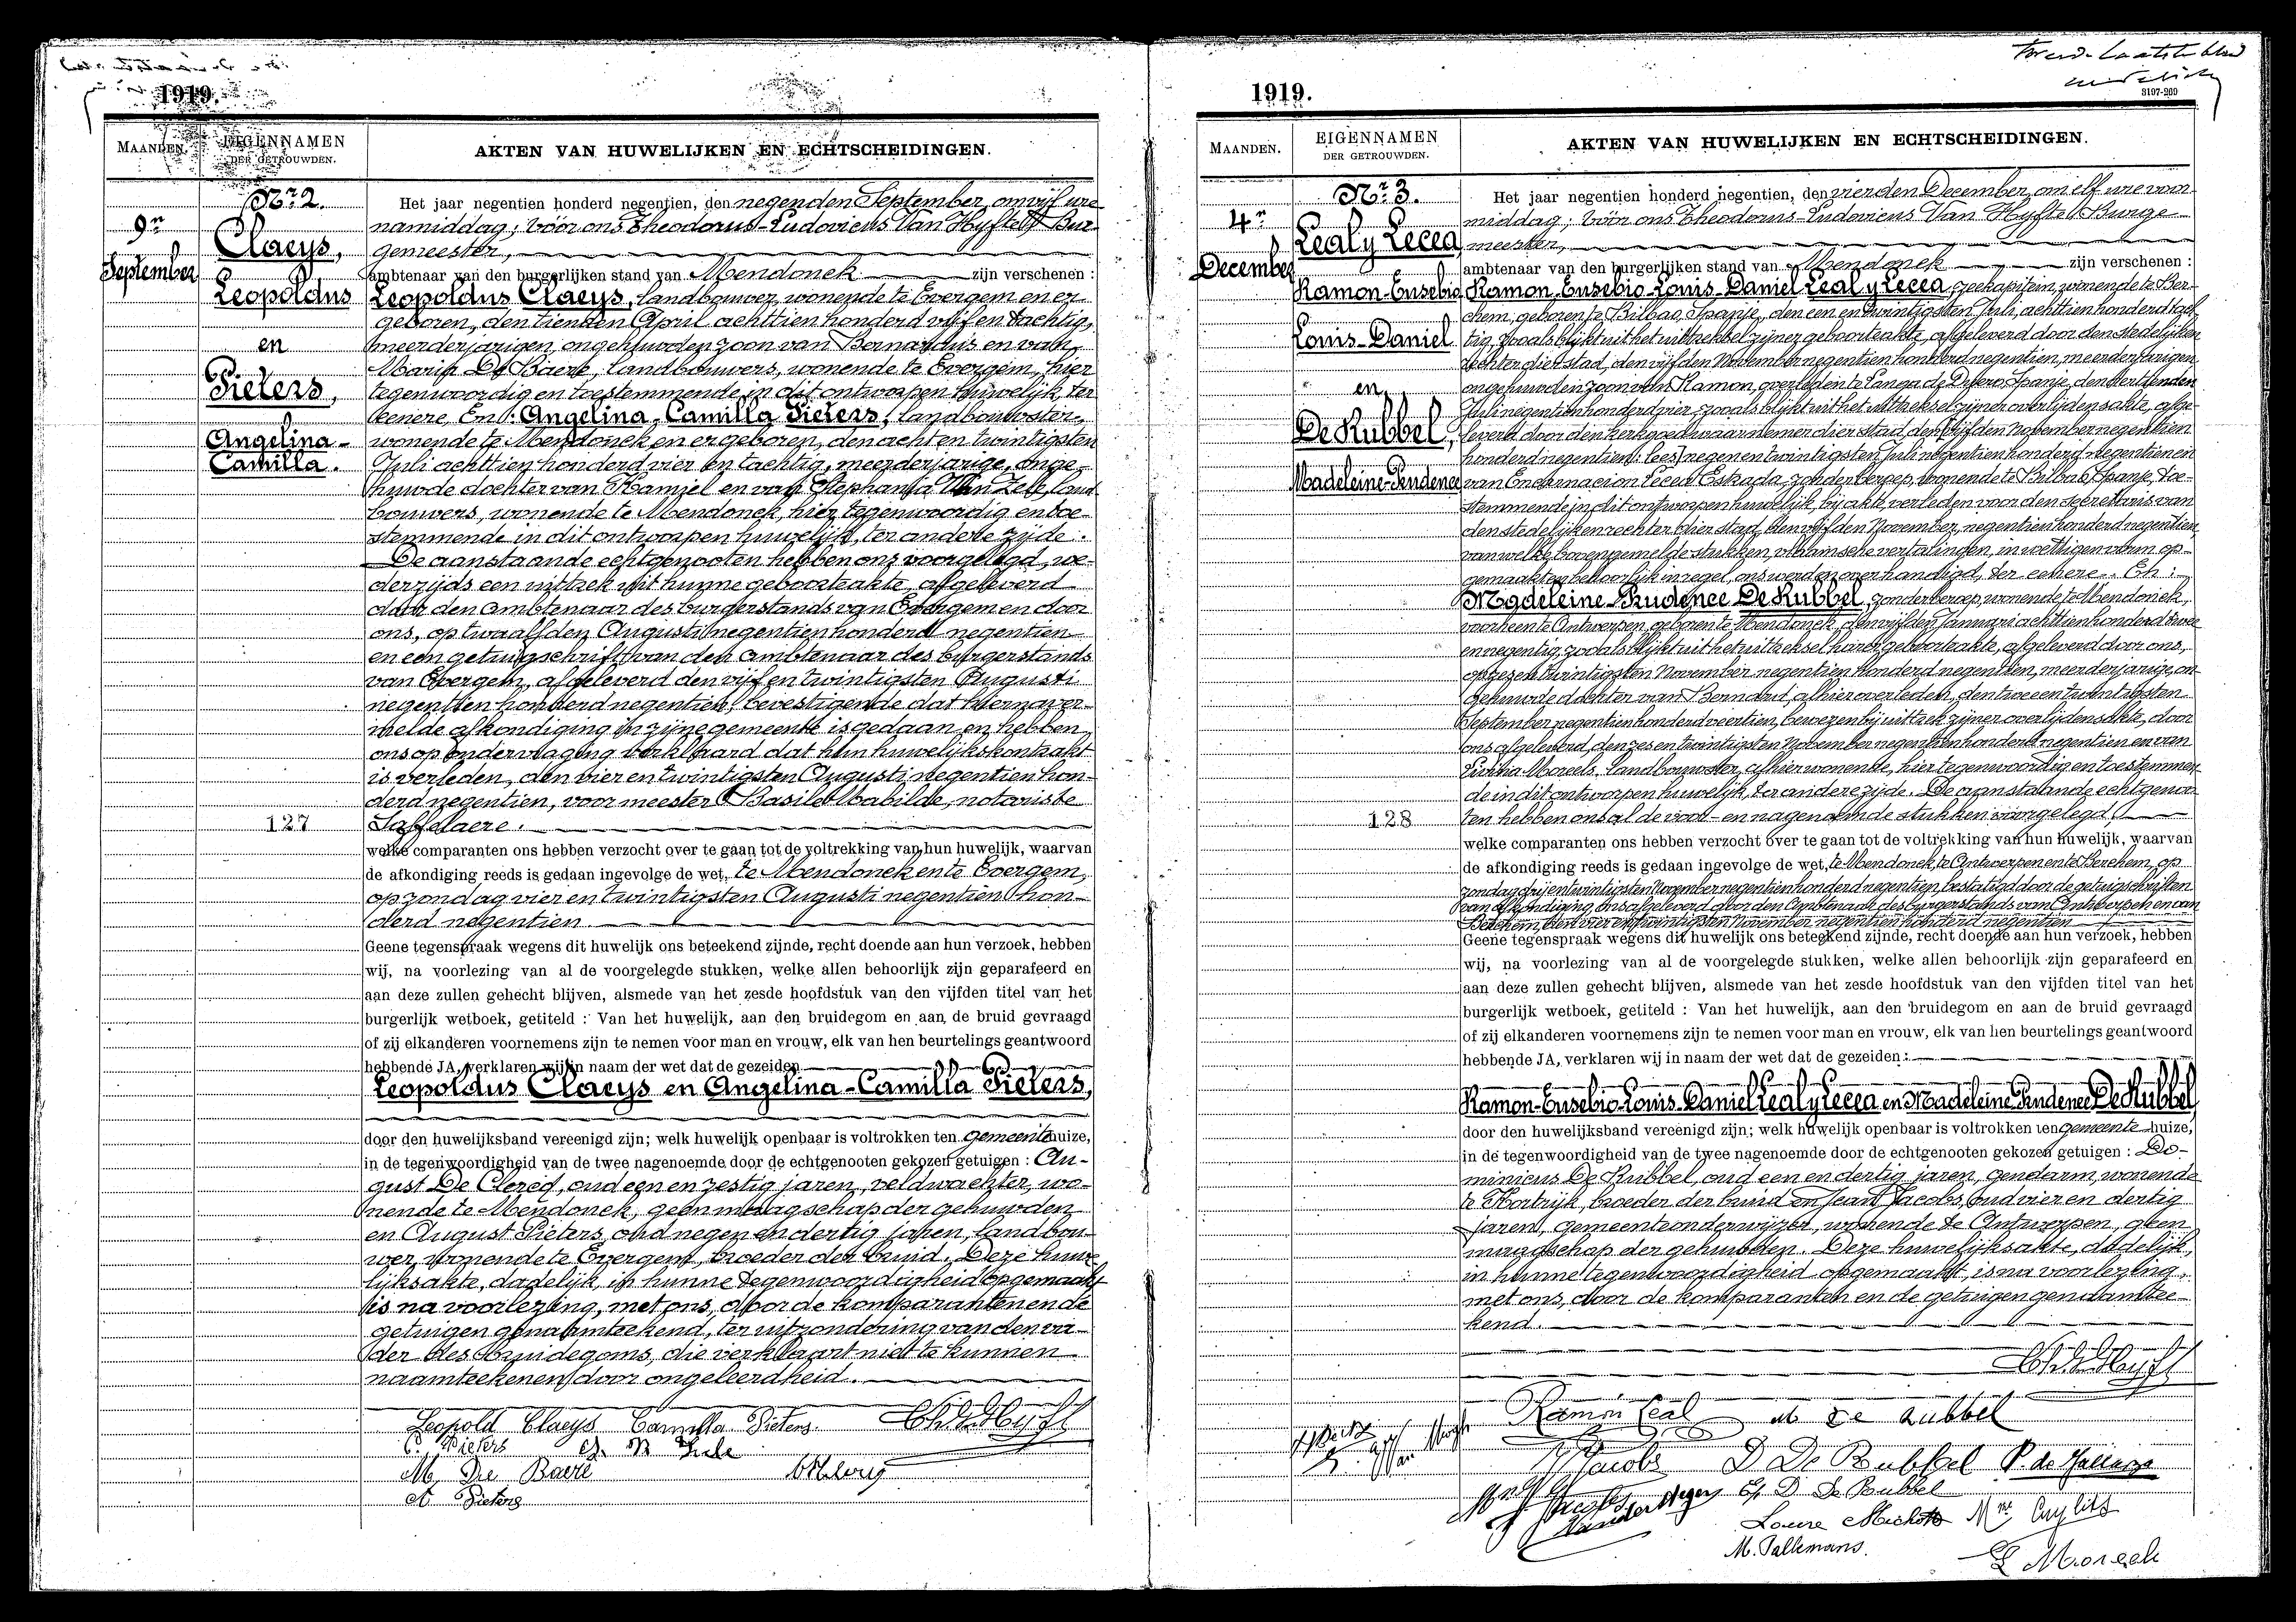 1919.
MAANDEN.
EIGENNAMEN
DER GETROUWDEN.
AKTEN VAN HUWELIJKEN EN ECHTSCHEIDINGEN.
Nr 2.
9n
September
Claeys,
Leopoldus
en
Pieters,
Angelina-
Camilla.
127
Het jaar negentien honderd negentien, den negenden September, om vijf ure
namiddag; vóór ons Theodorus-Ludovicus Van Hyfte, Bur-
gemeester,
ambtenaar van den burgerlijken stand van Mendonck zijn verschenen :
Leopoldus Claeys, landbouwer, wonende te Evergem en er
geboren, den tienden April achttien honderd vijf en tachtig,
meerderjarigen, ongehuwden zoon van Bernardus en van
Maria De Baere, landbouwers, wonende te Evergem, hier
tegenwoordig en toestemmende in dit ontworpen huwelijk, ter
eenere. En : Angelina-Camilla Pieters, landbouwster,
wonende te Mendonck en er geboren, den acht en twintigsten
Juli achttien honderd vier en tachtig, meerderjarige, onge-
huwde dochter van Kamiel en van Stephania Van Zele, land
bouwers, wonende te Mendonck, hier tegenwoordig en toe-
stemmende in dit ontworpen huwelijk, ter andere zijde.
De aanstaande echtgenooten hebben ons voorgelegd, we-
derzijds een uittrek uit hunne geboorteakte, afgeleverd
door den ambtenaar des burgerstands van Evergem en door
ons, op twaalfden Augusti negentien honderd negentien
en een getuigschrift van den ambtenaar des burgerstands
van Evergem, afgeleverd den vijf en twintigsten Augusti
negentien honderd negentien, bevestigende dat hiernaver-
melde afkondiging in zijne gemeente is gedaan, en hebben
ons op ondervraging verklaard dat hun huwelijkskontrakt
is verleden, den vier en twintigsten Augusti negentien hon-
derd negentien, voor meester Basile Mabilde, notaris te
Saffelaere.
welke comparanten ons hebben verzocht over te gaan tot de voltrekking van hun huwelijk, waarvan
de afkondiging reeds is gedaan ingevolge de wet, te Mendonck en te Evergem,
op zondag vier en twintigsten Augusti negentien hon-
derd negentien
Geene tegenspraak wegens dit huwelijk ons beteekend zijnde, recht doende aan hun verzoek, hebben
wij, na voorlezing van al de voorgelegde stukken, welke allen behoorlijk zijn geparafeerd en
aan deze zullen gehecht blijven, alsmede van het zesde hoofdstuk van den vijfden titel van het
burgerlijk wetboek, getiteld : Van het huwelijk, aan den bruidegom en aan de bruid gevraagd
of zij elkanderen voornemens zijn te nemen voor man en vrouw, elk van hen beurtelings geantwoord
hebbende JA, verklaren wij in naam der wet dat de gezeiden
Leopoldus Claeys en Angelina-Camilla Pieters,
door den huwelijksband vereenigd zijn; welk huwelijk openbaar is voltrokken ten gemeentehuize,
in de tegenwoordigheid van de twee nagenoemde door de echtgenooten gekozen getuigen : Au-
gust De Clercq, oud een en zestig jaren, veldwachter, wo-
nende te Mendonck, geen maagschap der gehuwden
en August Pieters, oud negen en dertig jaren, landbou-
wer, wonende te Evergem, broeder der bruid. Deze huwe
lijksakte, dadelijk, in hunne tegenwoordigheid opgemaakt
is na voorlezing, met ons, door de komparanten en de
getuigen genaamteekend, ter uitzondering van den va-
der des bruidegoms, die verklaart niet te kunnen
naamteekenen door ongeleerdheid.
Leopold Claeys Camilla Pieters
C. Pieters
M. De Baere
A Pieters
1919.
3197-269
MAANDEN.
EIGENNAMEN
DER GETROUWDEN.
AKTEN VAN HUWELIJKEN EN ECHTSCHEIDINGEN.
Nr 3.
4n
December
Leal y Lecea
Ramon-Eusebio
Louis-Daniel
en
De Rubbel,
Madeleine-Prudence
128
Het jaar negentien honderd negentien, den vierden December, om elf ure voor
middag; vóór ons Theodorus-Ludovicus Van Hyfte, Burge
meester,
ambtenaar van den burgerlijken stand van Mendonck zijn verschenen :
Ramon-Eusebio-Louis-Daniel Leal y Lecea, zeekapitein, wonende te Ber-
chem, geboren te Bilbao, Spanje, den een en twintigsten Juli achttien honderd tach
tig, zooals blijkt uit het uittreksel zijner geboorteakte, afgeleverd door den stedelijken
rechter dier stad, den vijfden November negentien honderd negentien, meerderjarigen
ongehuwden zoon van Ramon, overleden te Langa de Duero, Spanje, den dertienden
Juli negentien honderd vier, zooals blijkt uit het uittreksel zijner overlijdensakte, afge-
leverd door den kerkgoedwaarnemer dier stad, den vijfden November negentien
honderd negentien: lees, negen en twintigsten Juli negentien honderd negentien en
van Encarnacion Lecea Eskada, zonder beroep, wonende te Bilbao, Spanje, toe-
stemmende in dit ontworpen huwelijk, bij akte verleden voor den secretaris van
den stedelijken rechter dier stad, den vijfden November, negentien honderd negentien,
van welke bovengemelde stukken, vlaamsche vertalingen, in wettigen vorm op-
gemaakt en behoorlijk in regel, ons werden overhandigd, ter eenere. En :
Madeleine-Prudence De Rubbel, zonder beroep, wonende te Mendonck,
voorheen te Antwerpen, geboren te Mendonck, den vijfden Januari achttien honderd twee
en negentig, zooals blijkt uit het uittreksel harer geboorteakte, afgeleverd door ons,
op zes en twintigsten November negentien honderd negentien, meerderjarige, on
gehuwde dochter van Bernard, alhier overleden, den twee en twintigsten
September negentien honderd veertien, bewezen bij uittrek zijner overlijdensakte, door
ons afgeleverd, den zes en twintigsten November negentien honderd negentien en van
Livina Moreels, landbouwster, alhier wonende, hier tegenwoordig en toestemmen
de in dit ontworpen huwelijk, ter andere zijde. De aanstaande echtgenoo
ten hebben ons al de voor- en nagenoemde stukken voorgelegd,
welke comparanten ons hebben verzocht over te gaan tot de voltrekking van hun huwelijk, waarvan
de afkondiging reeds is gedaan ingevolge de wet, te Mendonck, te Antwerpen en te Berchem, op
zondag drij en twintigsten November negentien honderd negentien, bestatigd door de getuigschriften
van afkondiging, ons afgeleverd door den Ambtenaar des burgerstands van Antwerpen en van
Berchem, den vier en twintigsten November negentien honderd negentien
Geene tegenspraak wegens dit huwelijk ons beteekend zijnde, recht doende aan hun verzoek, hebben
wij, na voorlezing van al de voorgelegde stukken, welke allen behoorlijk zijn geparafeerd en
aan deze zullen gehecht blijven, alsmede van het zesde hoofdstuk van den vijfden titel van het
burgerlijk wetboek, getiteld : Van het huwelijk, aan den bruidegom en aan de bruid gevraagd
of zij elkanderen voornemens zijn te nemen voor man en vrouw, elk van hen beurtelings geantwoord
hebbende JA, verklaren wij in naam der wet dat de gezeiden :
Ramon-Eusebio-Louis-Daniel Leal y Lecea en Madeleine Prudence De Rubbel
door den huwelijksband vereenigd zijn; welk huwelijk openbaar is voltrokken ten gemeente-huize,
in de tegenwoordigheid van de twee nagenoemde door de echtgenooten gekozen getuigen : Do-
minicus De Rubbel, oud een en dertig jaren, gendarm, wonende
te Kortrijk, broeder der bruid en Jean Jacobs, oud vier en dertig
jaren, gemeenteonderwijzer, wonende te Antwerpen, geen
maagschap der gehuwden. Deze huwelijksakte, dadelijk,
in hunne tegenwoordigheid opgemaakt, is na voorlezing,
met ons, door de komparanten en de getuigen genaamtee-
kend.
Ramon Leal M De Rubbel
J Jacobs D De Rubbel
D De Rubbel
M. Tallemans.